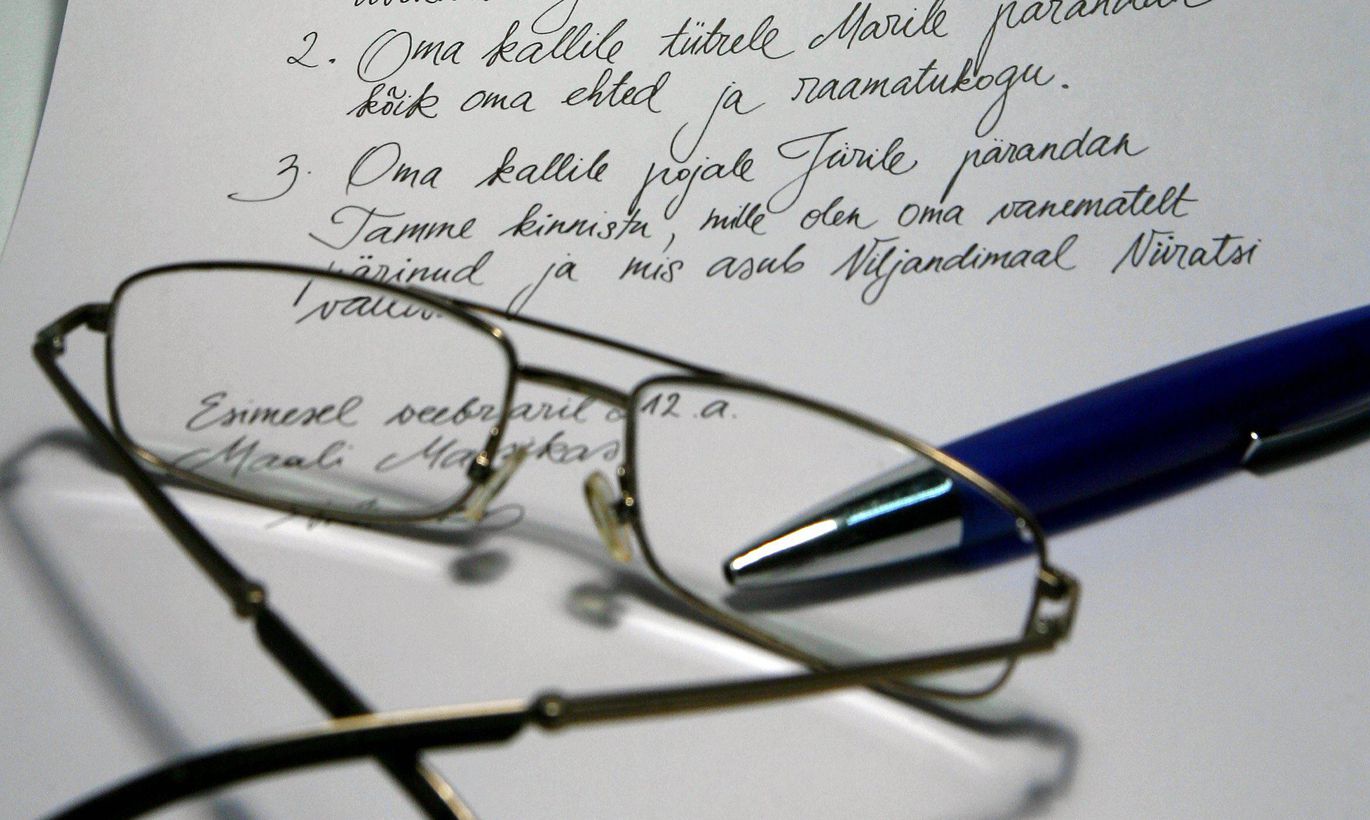 2. Oma kallile tütrele Marile pärandan
kõik oma ehted ja raamatukogu.
3. Oma kallile pojale Jürile pärandan
Tamme kinnistu, mille olen oma vanematelt
pärinud ja mis asub Viljandimaal Niiratsi
vallas.
Esimesel veebruaril 2012.a.
Maali Maasikas